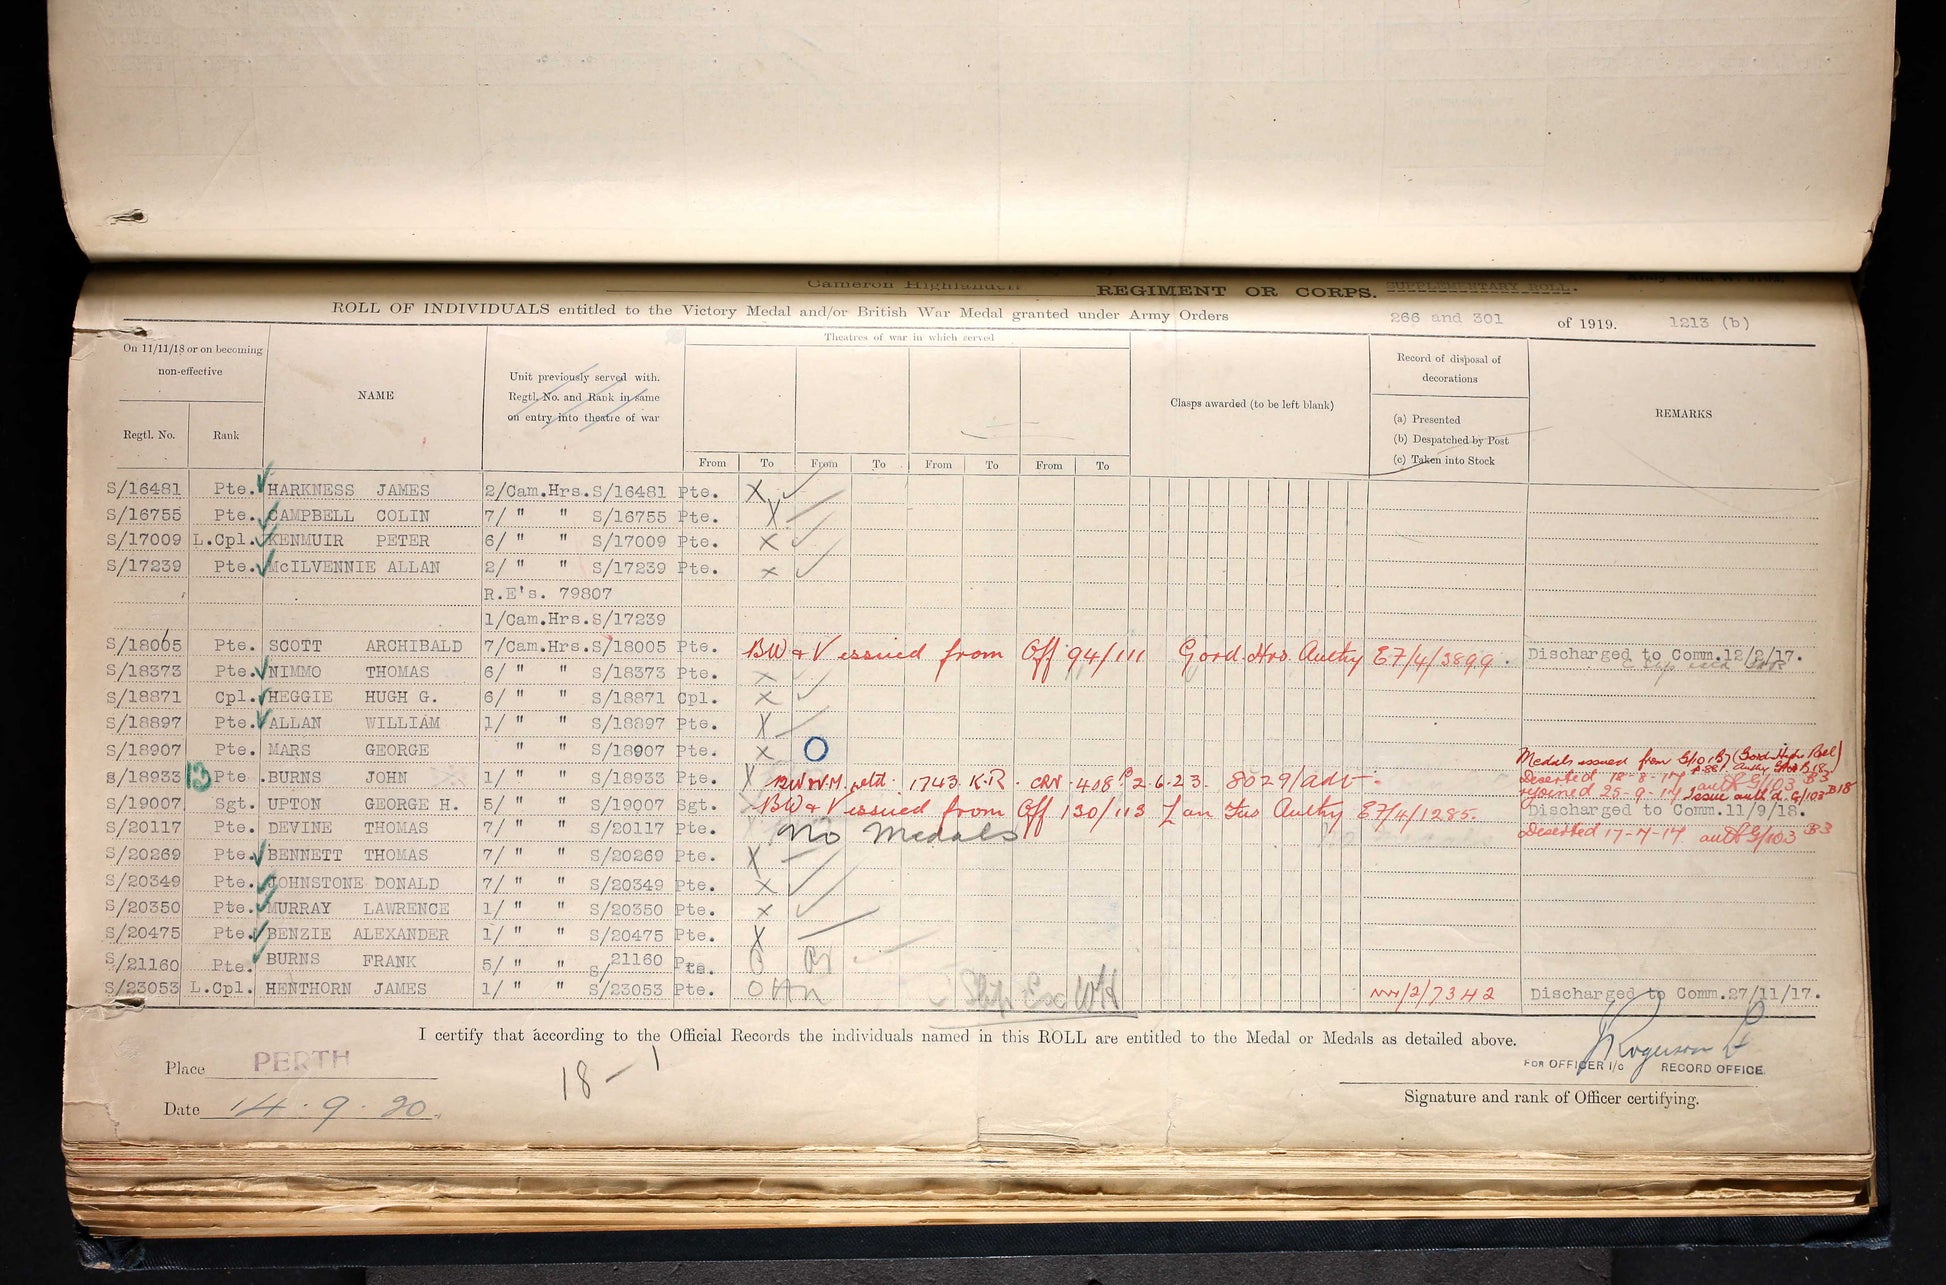 Cameron Highlanders REGIMENT OR CORPS. SUPPLEMENTARY ROLL.
ROLL OF INDIVIDUALS entitled to the Victory Medal and/or British War Medal granted under Army Orders 266 and 301 of 1919. 1213 (b)
On 11/11/18 or on becoming non-effective
Regtl. No. Rank
NAME
Unit previously served with. Regtl. No. and Rank in same on entry into theatre of war
Theatres of war in which served
From To From To From To From To
Clasps awarded (to be left blank)
Record of disposal of decorations
(a) Presented
(b) Despatched by Post
(c) Taken into Stock
REMARKS
S/16481 Pte. HARKNESS JAMES 2/Cam.Hrs.S/16481 Pte. X
S/16755 Pte. CAMPBELL COLIN 7/ " " S/16755 Pte. X
S/17009 L.Cpl. KENMUIR PETER 6/ " " S/17009 Pte. X
S/17239 Pte. McILVENNIE ALLAN 2/ " " S/17239 Pte. X
R.E's. 79807
1/Cam.Hrs.S/17239
S/18005 Pte. SCOTT ARCHIBALD 7/Cam.Hrs.S/18005 Pte. BW & V issued from Off 94/111 Gord. Hrs. Authy E7/4/3899. Discharged to Comm.12/2/17.
S/18373 Pte. NIMMO THOMAS 6/ " " S/18373 Pte. X
S/18871 Cpl. HEGGIE HUGH G. 6/ " " S/18871 Cpl. X
S/18897 Pte. ALLAN WILLIAM 1/ " " S/18897 Pte. X
S/18907 Pte. MARS GEORGE " " S/18907 Pte. X O Medals issued from G/101 B7 (Gord. High Roll)
S/18933 13 Pte. BURNS JOHN 1/ " " S/18933 Pte. X BW V.M. 1743 K.R. 408 2.6.23. 8029/adt. Deserted 18-8-17 auth G/103 B3
rejoined 25-9-17 Issue auth'd. G/103 B18
S/19007 Sgt. UPTON GEORGE H. 5/ " " S/19007 Sgt. BW & V issued from Off 130/113 Lan Fus Authy E7/4/1285. Discharged to Comm.11/9/18.
S/20117 Pte. DEVINE THOMAS 7/ " " S/20117 Pte. No Medals Deserted 17-7-17 auth G/103 B3
S/20269 Pte. BENNETT THOMAS 7/ " " S/20269 Pte. X
S/20349 Pte. JOHNSTONE DONALD 7/ " " S/20349 Pte. X
S/20350 Pte. MURRAY LAWRENCE 1/ " " S/20350 Pte. X
S/20475 Pte. BENZIE ALEXANDER 1/ " " S/20475 Pte. X
S/21160 Pte. BURNS FRANK 5/ " " S/21160 Pte.
S/23053 L.Cpl. HENTHORN JAMES 1/ " " S/23053 Pte. NW/2/7342 Discharged to Comm.27/11/17.
I certify that according to the Official Records the individuals named in this ROLL are entitled to the Medal or Medals as detailed above.
Place PERTH
Date 14.9.20.
18 - 1
FOR OFFICER I/c RECORD OFFICE.
Signature and rank of Officer certifying.